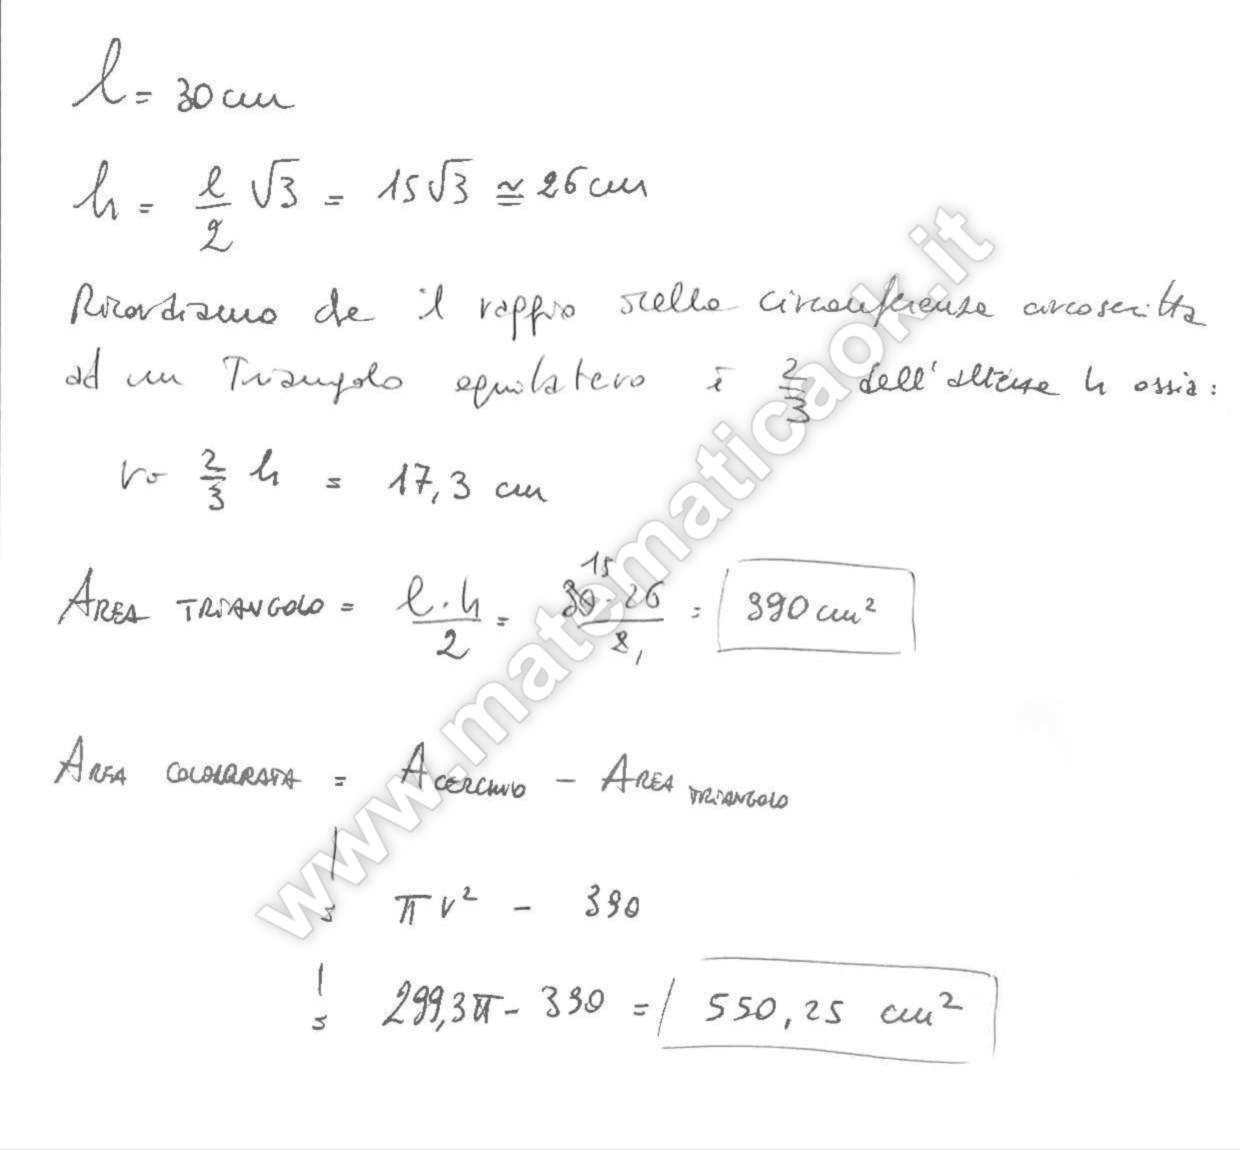 l = 30 cm
h = l/2 √3 = 15√3 ≅ 26 cm
Ricordiamo che il raggio della circonferenza circoscritta
ad un Triangolo equilatero è 2/3 dell'altezza h ossia:
r = 2/3 h = 17,3 cm
AREA TRIANGOLO = l · h / 2 = 30 15 · 26 / 2 1 = 390 cm²
AREA COLORATA = A CERCHIO - AREA TRIANGOLO
= πr² - 390
= 299,3π - 390 = 550,25 cm²
www.matematicaok.it